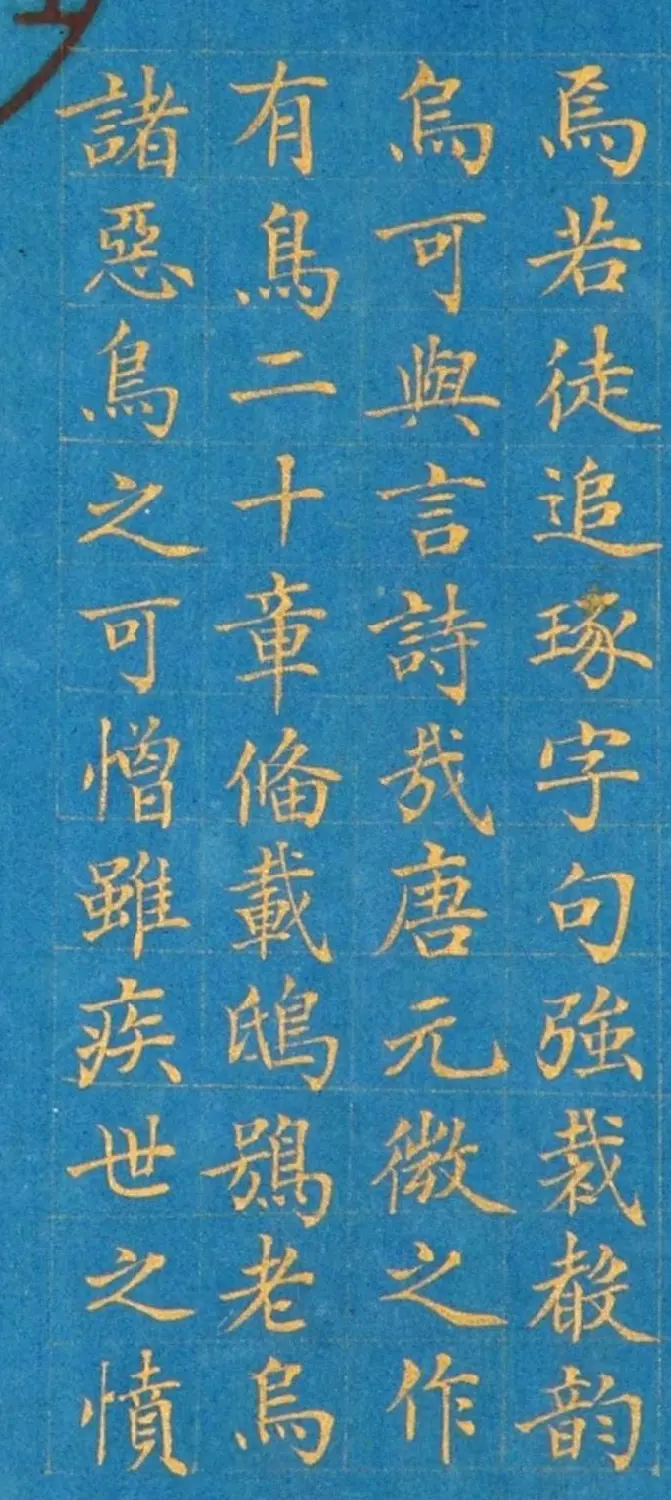 焉若徒追琢字句強裁聲韵
烏可與言詩㢤唐元微之作
有鳥二十章俻載鴟鴞老烏
諸惡鳥之可憎雖疾世之憤